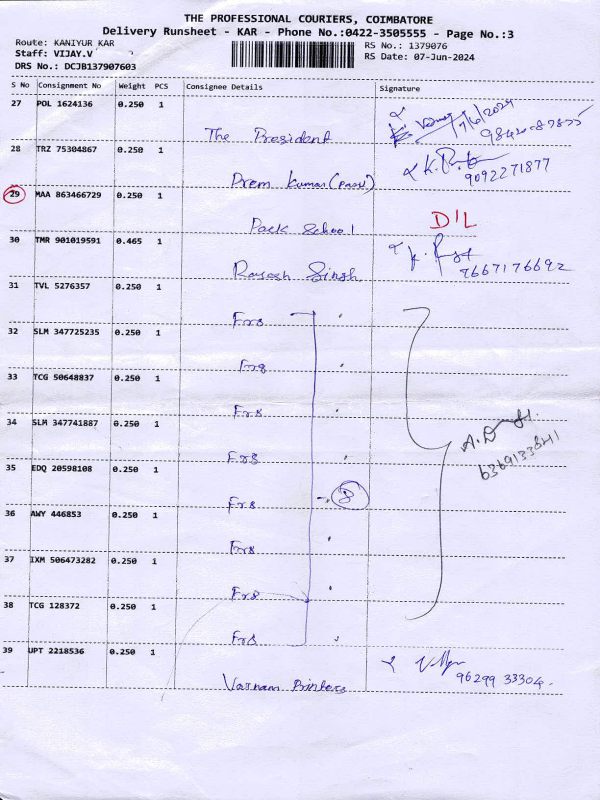 THE PROFESSIONAL COURIERS, COIMBATORE
Delivery Runsheet - KAR - Phone No.:0422-3505555 - Page No.:3
Route: KANIYUR KAR
RS No.: 1379076
Staff: VIJAY.V
RS Date: 07-Jun-2024
DRS No.: DCJB137907603
S No Consignment No Weight PCS Consignee Details Signature
27 POL 1624136 0.250 1
The President
28 TRZ 75304867 0.250 1
Prem Kumar
9092271877
29 MAA 863466729 0.250 1
Park School
D/L
30 TMR 901019591 0.465 1
Rajesh Singh
7667176692
31 TVL 5276357 0.250 1
Frs
32 SLM 347725235 0.250 1
Frs
33 TCG 50648837 0.250 1
Frs
34 SLM 347741887 0.250 1
Frs
35 EDQ 20598108 0.250 1
Frs
8
36 AWY 446853 0.250 1
Frs
37 IXM 506473282 0.250 1
Frs
38 TCG 128372 0.250 1
Frs
39 UPT 2218536 0.250 1
Varnam Printers
96299 33304